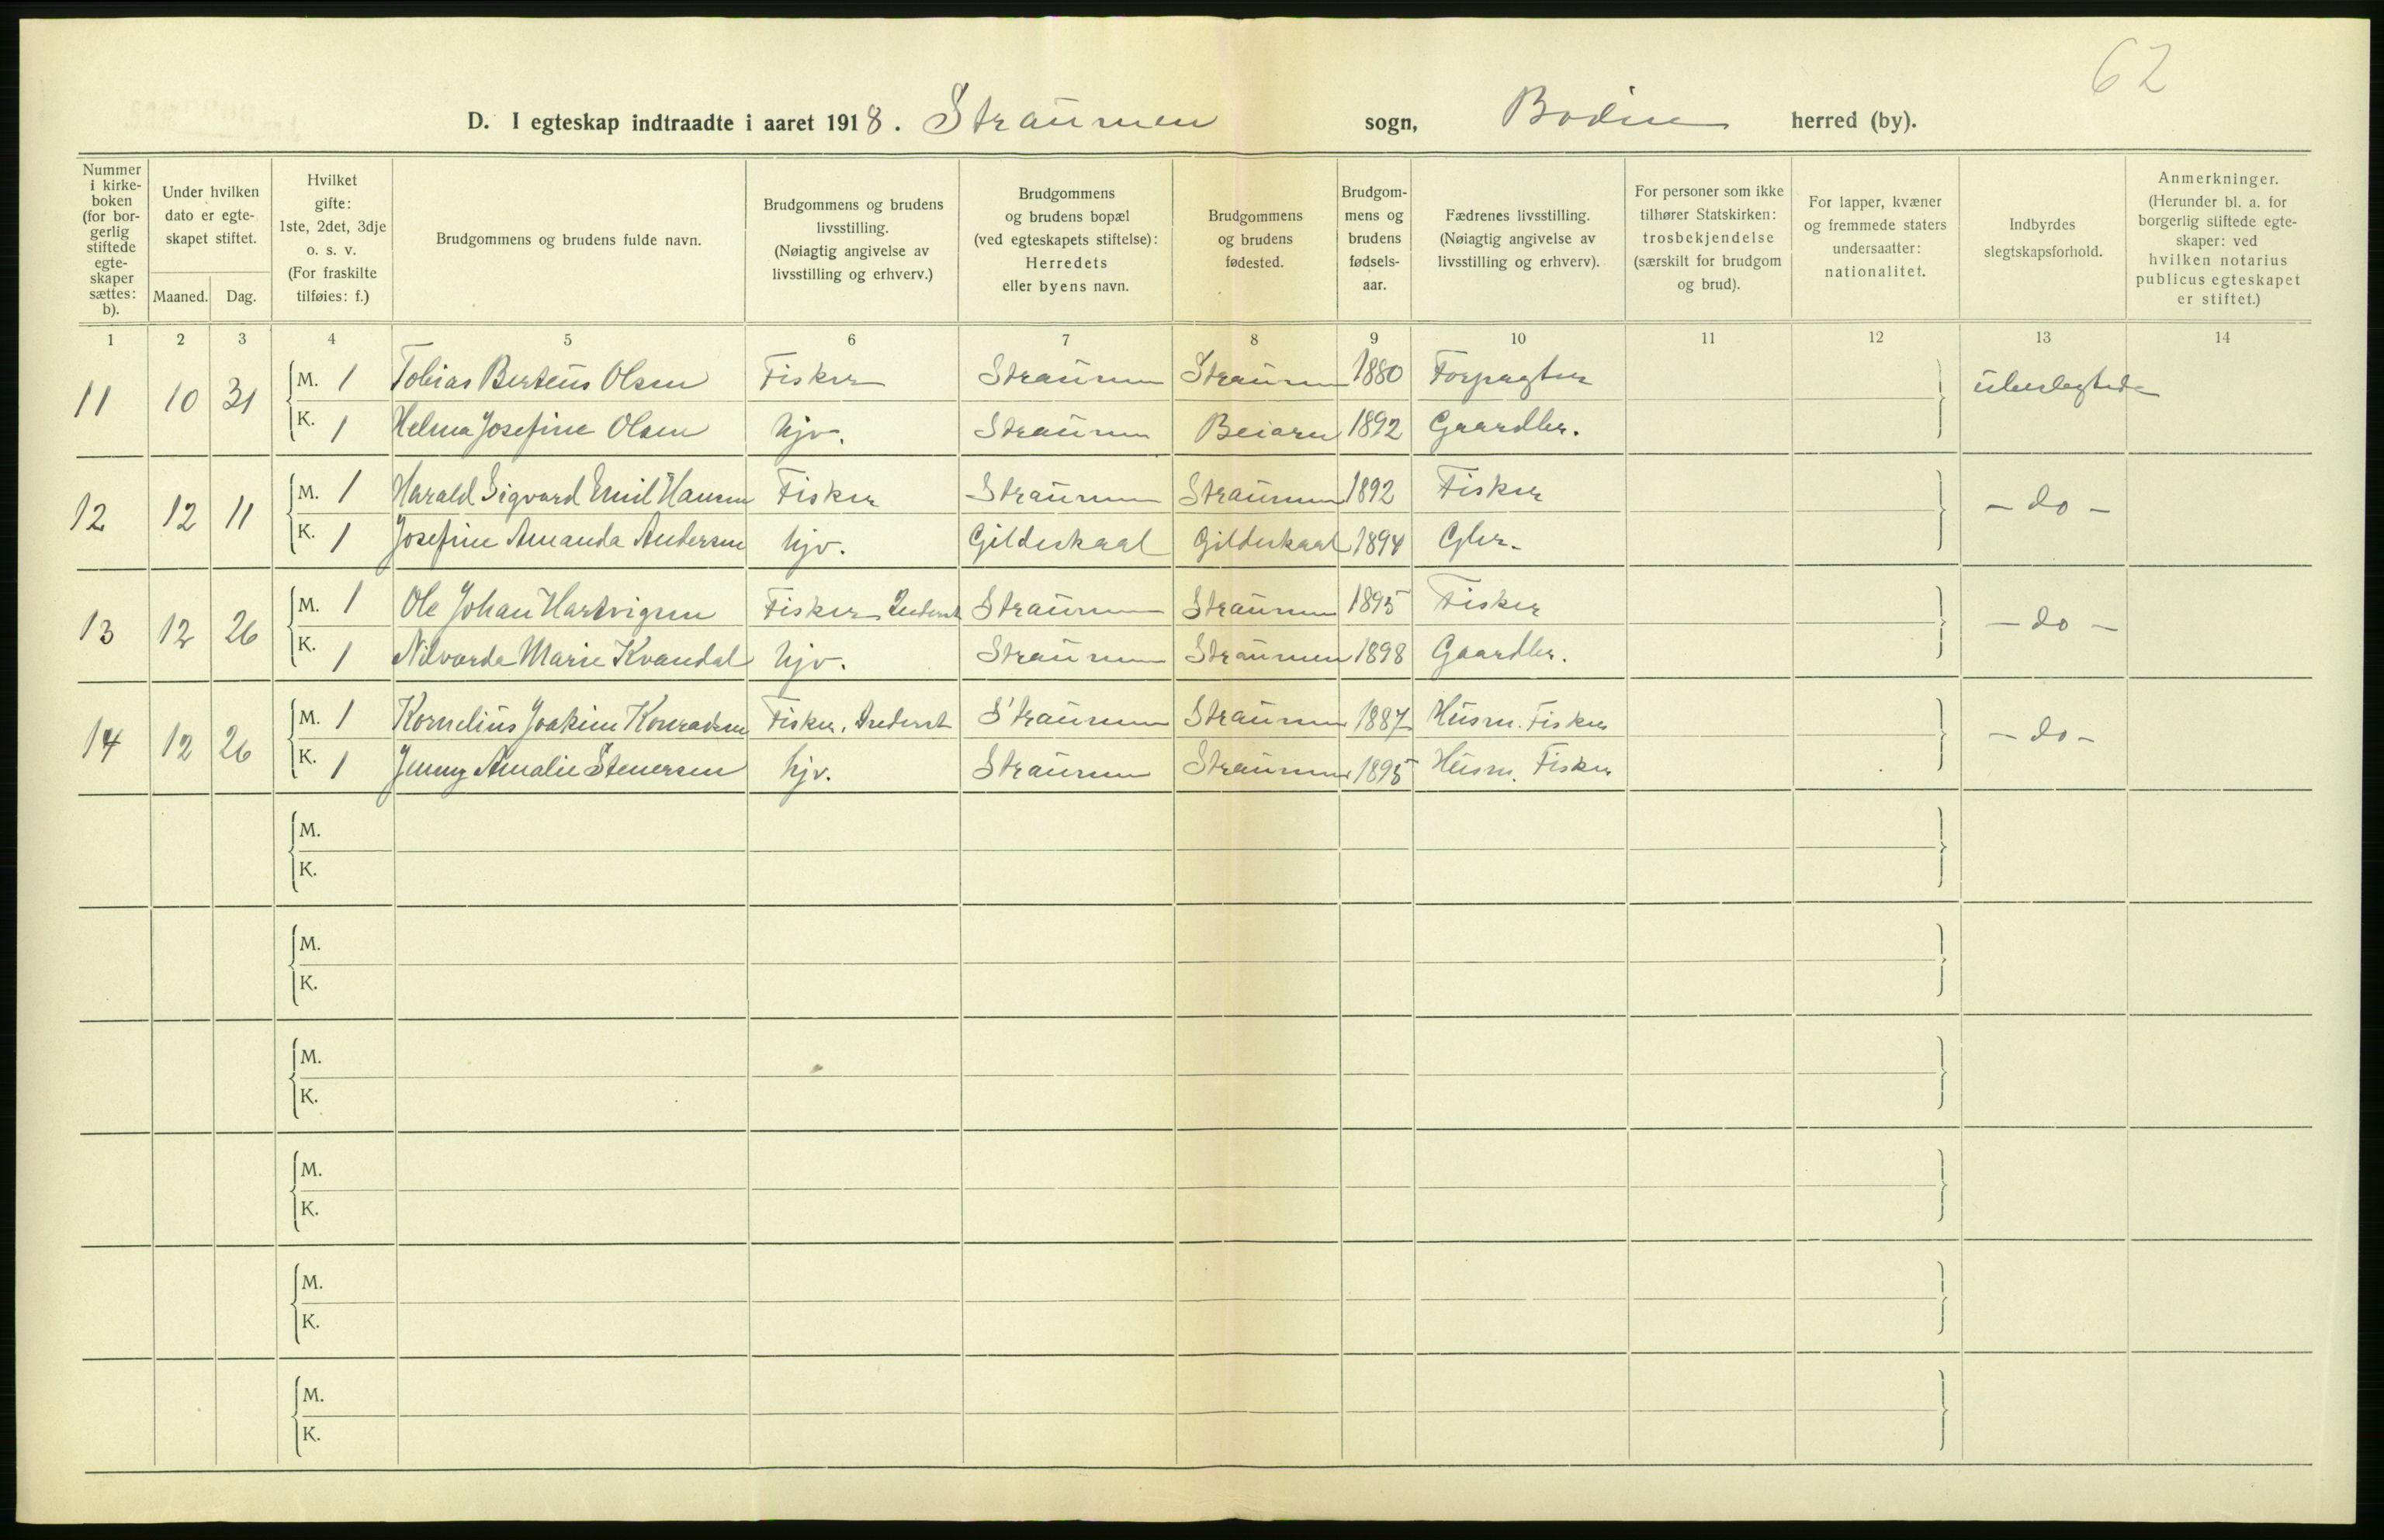 62
D. I egteskap indtraadte i aaret 1918. Straumen sogn, Bodin herred (by).
Nummer i kirke-boken (for bor-gerlig stiftede egte-skaper sættes: b).
Under hvilken dato er egte-skapet stiftet.
Maaned. Dag.
Hvilket gifte: 1ste, 2det, 3dje o. s. v. (For fraskilte tilføies: f.)
Brudgommens og brudens fulde navn.
Brudgommens og brudens livsstilling. (Nøiagtig angivelse av livsstilling og erhverv.)
Brudgommens og brudens bopæl (ved egteskapets stiftelse): Herredets eller byens navn.
Brudgommens og brudens fødested.
Brudgom-mens og brudens fødsels-aar.
Fædrenes livsstilling. (Nøiagtig angivelse av livsstilling og erhverv).
For personer som ikke tilhører Statskirken: trosbekjendelse (særskilt for brudgom og brud).
For lapper, kvæner og fremmede staters undersaatter: nationalitet.
Indbyrdes slegtskapsforhold.
Anmerkninger. (Herunder bl. a. for borgerlig stiftede egte-skaper: ved hvilken notarius publicus egteskapet er stiftet.)
1 2 3 4 5 6 7 8 9 10 11 12 13 14
11 10 31 M. 1 Tobias Berteus Olsen Fisker Straumen Straumen 1880 Forpagter ubeslegtede
K. 1 Helma Josefine Olsen hjv. Straumen Beiarn 1892 Gaardbr.
12 12 11 M. 1 Harald Sigvard Emil Hansen Fisker Straumen Straumen 1892 Fisker - do -
K. 1 Josefine Amanda Andersen hjv. Gildeskaal Gildeskaal 1894 Gbr.
13 12 26 M. 1 Ole Johan Hartvigsen Fisker Straumen Straumen 1895 Fisker - do -
K. 1 Nilvarda Marie Kvandal hjv. Straumen Straumen 1898 Gaardbr.
14 12 26 M. 1 Kornelius Joakim Konradsen Fisker. Straumen Straumen 1887 Husm. Fisker - do -
K. 1 Jenny Amalie Stenersen hjv. Straumen Straumen 1895 Husm. Fisker
M.
K.
M.
K.
M.
K.
M.
K.
M.
K.
M.
K.